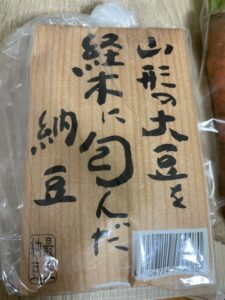 山形の大豆を
経木に包んだ
納豆